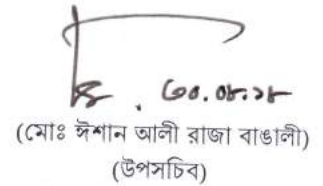 ৩০.০৮.১৮
(মোঃ ঈশান আলী রাজা বাঙালী)
(উপসচিব)